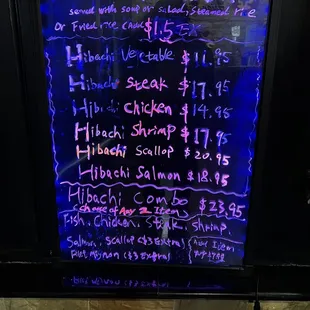 served with soup or salad, steamed rice
Or Fried rice $1.5 EX
Hibachi Vegetable $11.95
Hibachi Steak $17.95
Hibachi Chicken $14.95
Hibachi Shrimp $17.95
Hibachi Scallop $20.95
Hibachi Salmon $18.95
Hibachi Combo $23.95
Choice of Any 2 Items
Fish, Chicken, Steak, Shrimp.
Salmon, Scallop ($3 Extra)
Filet Mignon ($3 Extra)